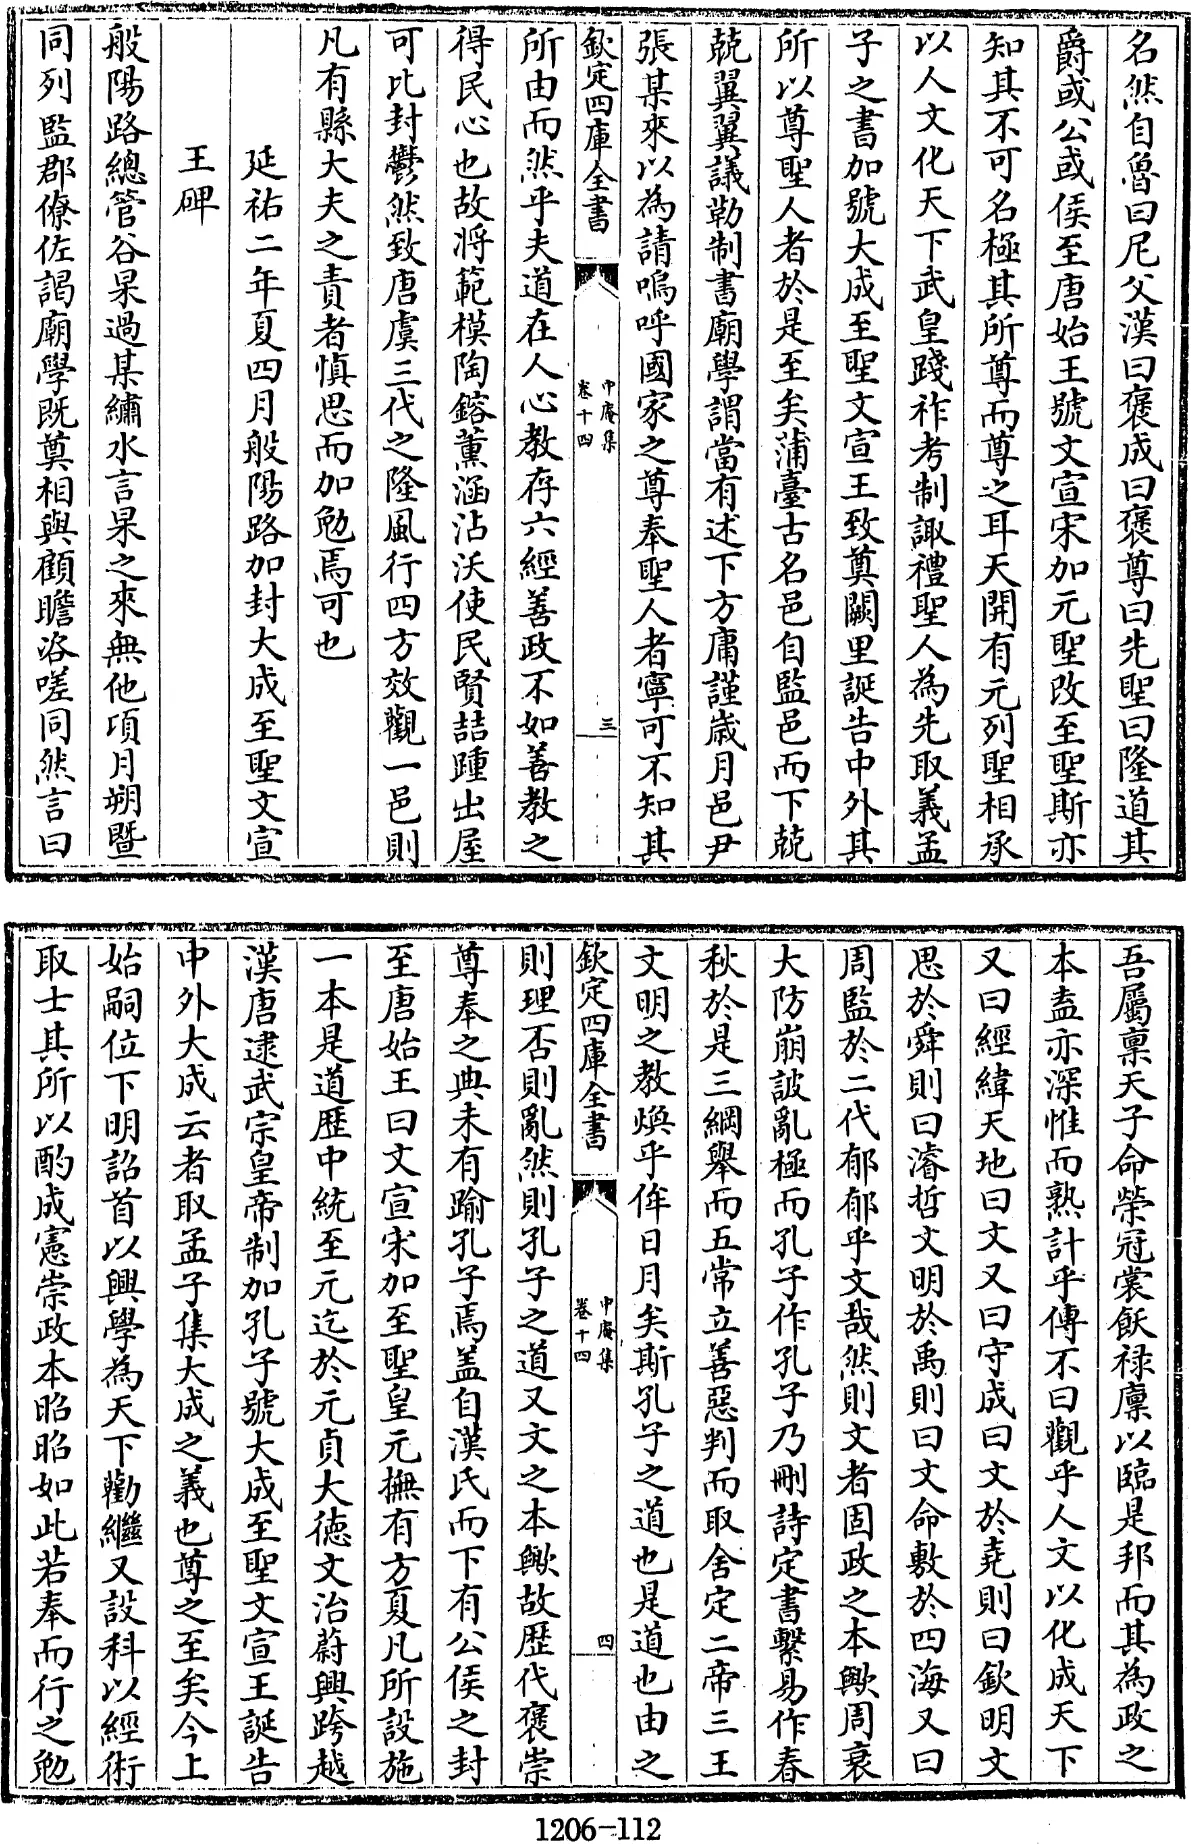 名然自魯曰尼父漢曰褒成曰褒尊曰先聖曰隆道其
爵或公或侯至唐始王號文宣宋加元聖改至聖斯亦
知其不可名極其所尊而尊之耳天開有元列聖相承
以人文化天下武皇踐祚考制諏禮聖人為先取義孟
子之書加號大成至聖文宣王致奠闕里誕告中外其
所以尊聖人者於是至矣蒲臺古名邑自監邑而下兢
兢翼翼議勒制書廟學謂當有述下方庸謹歲月邑尹
張某來以為請嗚呼國家之尊奉聖人者寧可不知其
欽定四庫全書
中庵集
卷十四
三
所由而然乎夫道在人心教存六經善政不如善教之
得民心也故將範模陶鎔薰涵沾沃使民賢喆踵出屋
可比封鬱然致唐虞三代之隆風行四方效觀一邑則
凡有縣大夫之責者慎思而加勉焉可也
延祐二年夏四月般陽路加封大成至聖文宣
王碑
般陽路總管谷杲過某繡水言杲之來無他項月朔暨
同列監郡僚佐謁廟學既奠相與顧瞻洛嗟同然言曰
吾屬稟天子命榮冠裳飫祿廩以臨是邦而其為政之
本盍亦深惟而熟計乎傳不曰觀乎人文以化成天下
又曰經緯天地曰文又曰守成曰文於堯則曰欽明文
思於舜則曰濬哲文明於禹則曰文命敷於四海又曰
周監於二代郁郁乎文哉然則文者固政之本歟周衰
大防崩詖亂極而孔子作孔子乃刪詩定書繫易作春
秋於是三綱舉而五常立善惡判而取舍定二帝三王
文明之教煥乎侔日月矣斯孔子之道也是道也由之
欽定四庫全書
中庵集
卷十四
四
則理否則亂然則孔子之道又文之本歟故歷代褒崇
尊奉之典未有踰孔子焉盖自漢氏而下有公侯之封
至唐始王曰文宣宋加至聖皇元撫有方夏凡所設施
一本是道歷中統至元迄於元貞大德文治蔚興跨越
漢唐逮武宗皇帝制加孔子號大成至聖文宣王誕告
中外大成云者取孟子集大成之義也尊之至矣今上
始嗣位下明詔首以興學為天下勸繼又設科以經術
取士其所以酌成憲崇政本昭昭如此若奉而行之勉
1206-112